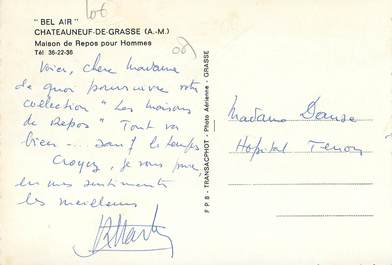 lot
" BEL AIR "
CHATEAUNEUF-DE-GRASSE (A.-M.)
Maison de Repos pour Hommes
Tél 36-22-36
Voici, chère Madame
de quoi poursuivre votre
collection " Les maisons
de Repos " Tout va
bien --- sauf le temps
Croyez, je vous prie
en mes sentiments
les meilleurs
Madame Danse
Hopital Tenon
F P 8 - TRANSACPHOT - Photo Aérienne - GRASSE